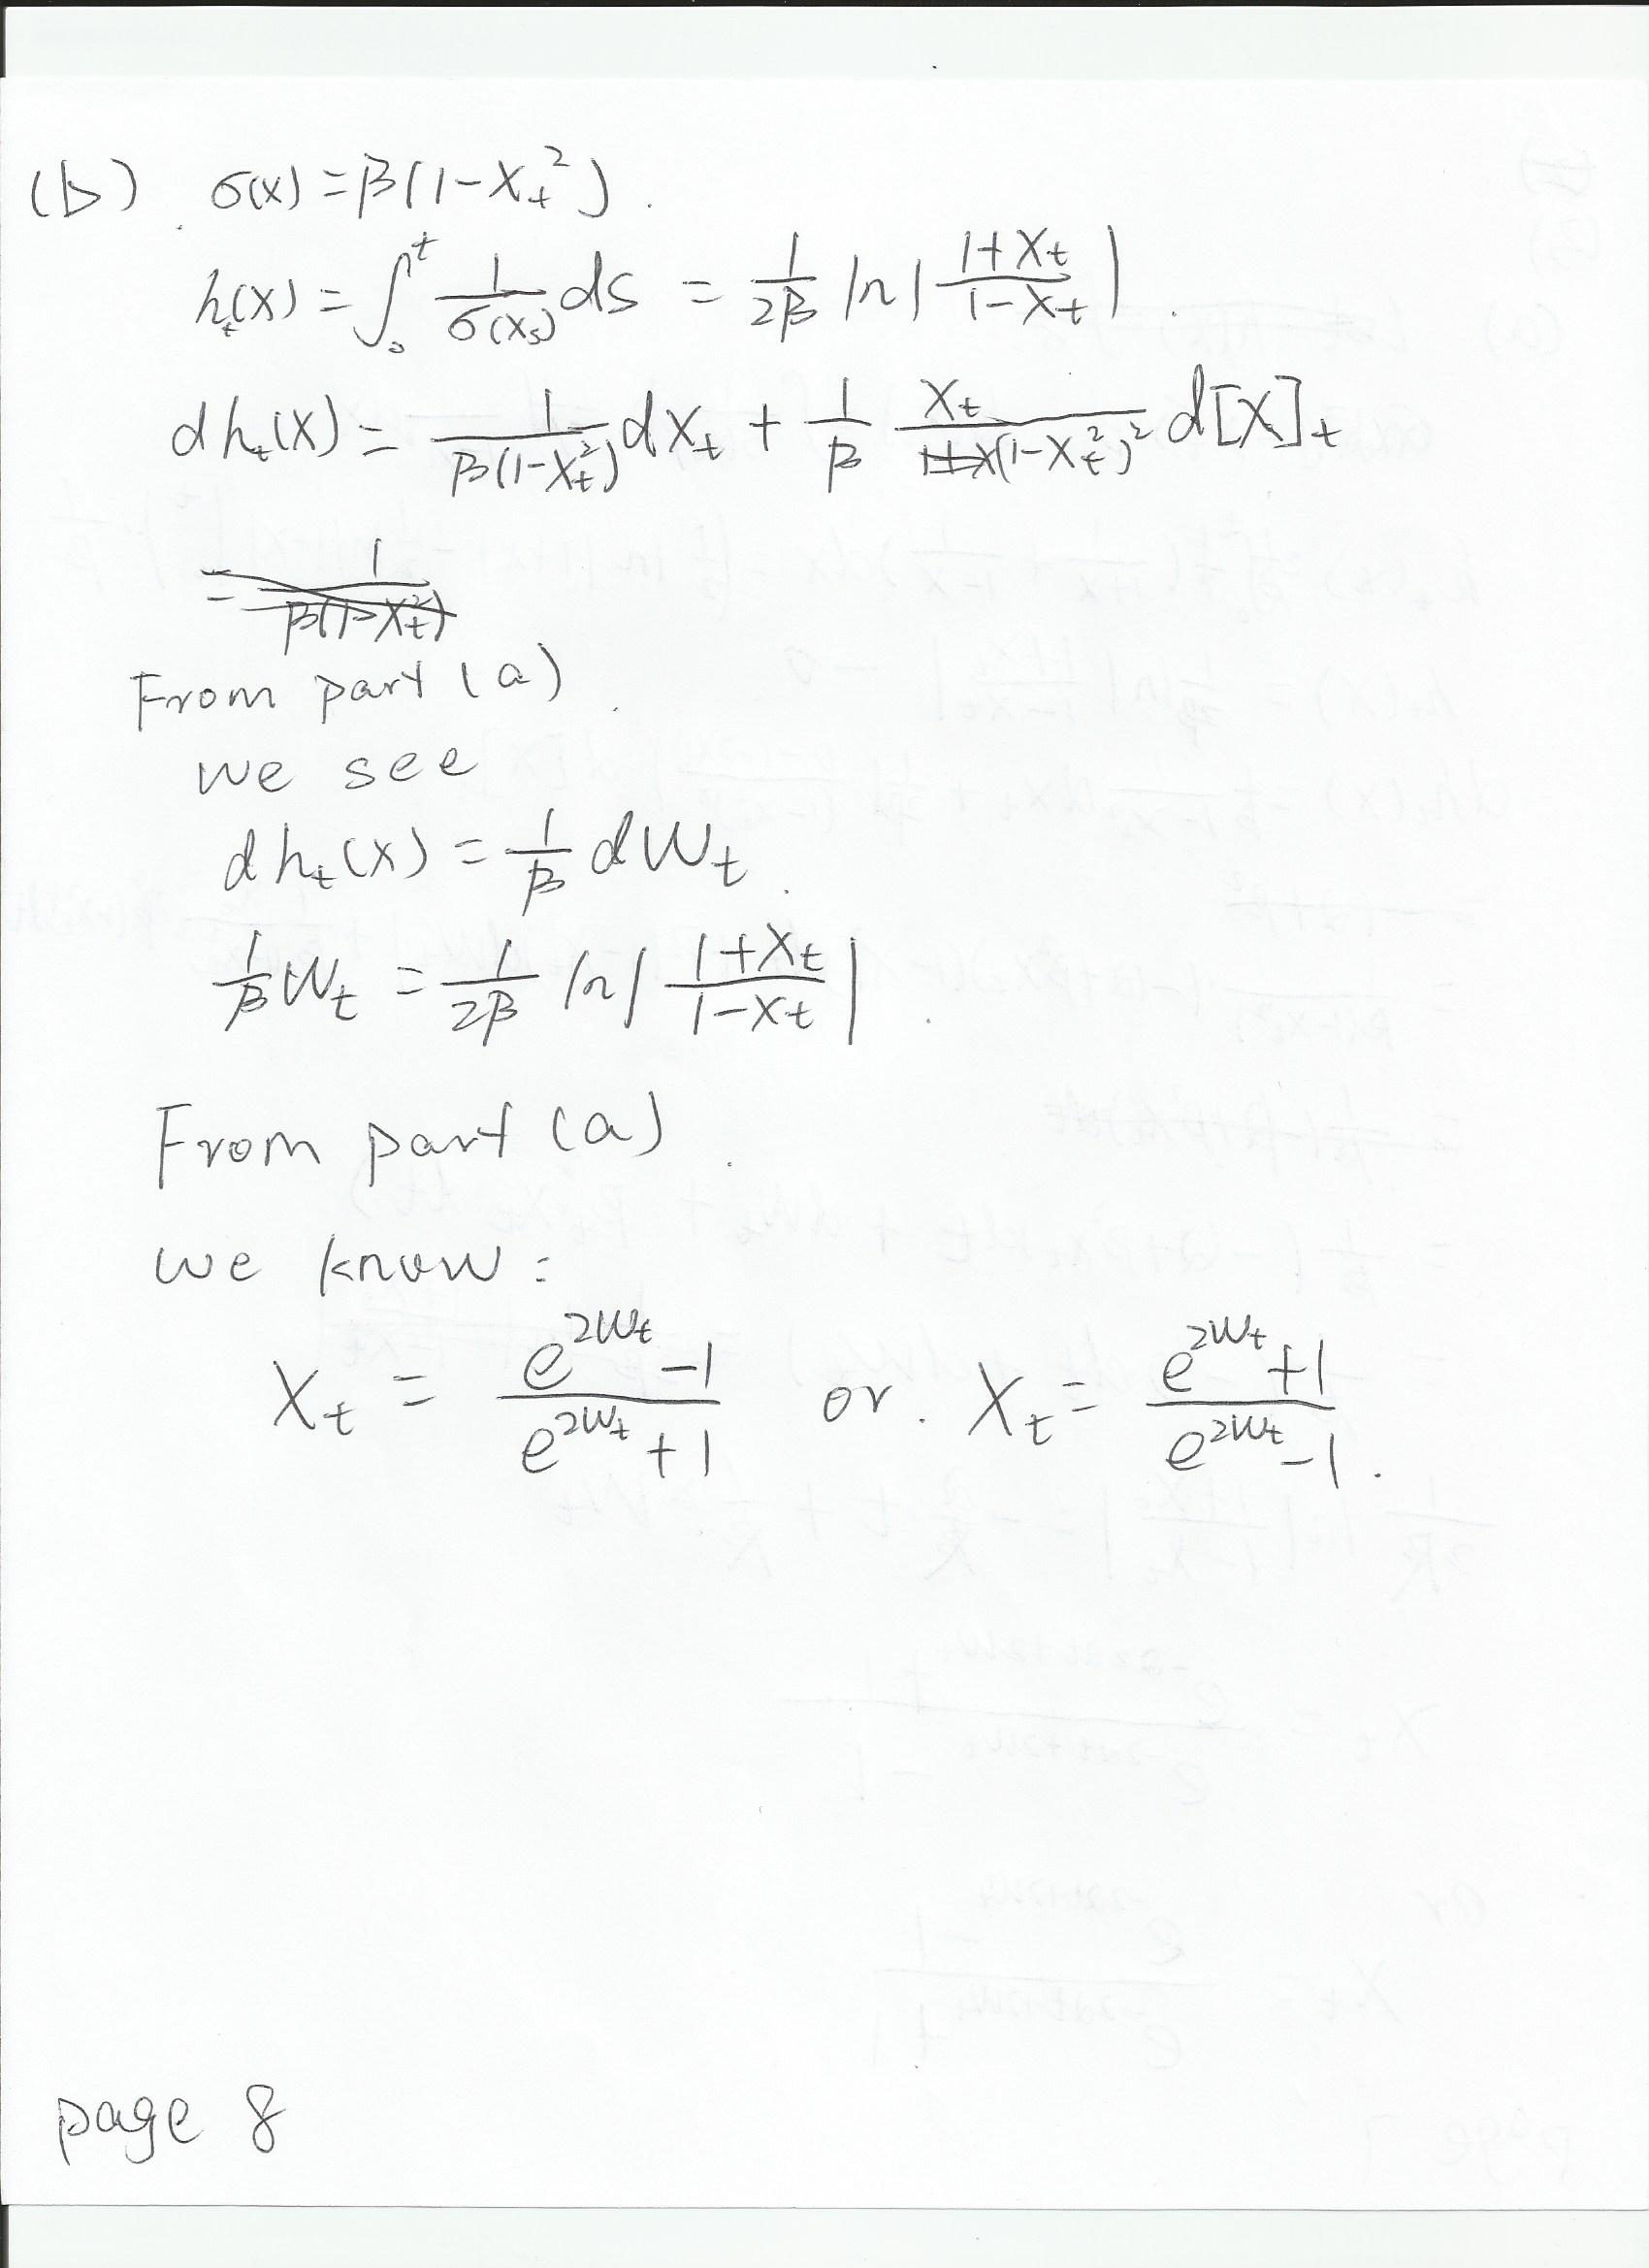 (b). σ(x) = β(1-X_t^2).
h_t(x) = ∫_0^t 1/σ(X_s) ds = 1/2β ln|1+X_t/1-X_t|.
dh_t(x) = 1/β(1-X_t^2) dX_t + 1/β X_t/(1-X_t^2)^2 d[X]_t
= 1/β(1-X_t^2)
From part (a).
we see
dh_t(x) = 1/β dW_t.
1/β W_t = 1/2β ln|1+X_t/1-X_t|.
From part (a).
we know:
X_t = e^{2W_t}-1/e^{2W_t}+1 or. X_t = e^{2W_t}+1/e^{2W_t}-1.
page 8